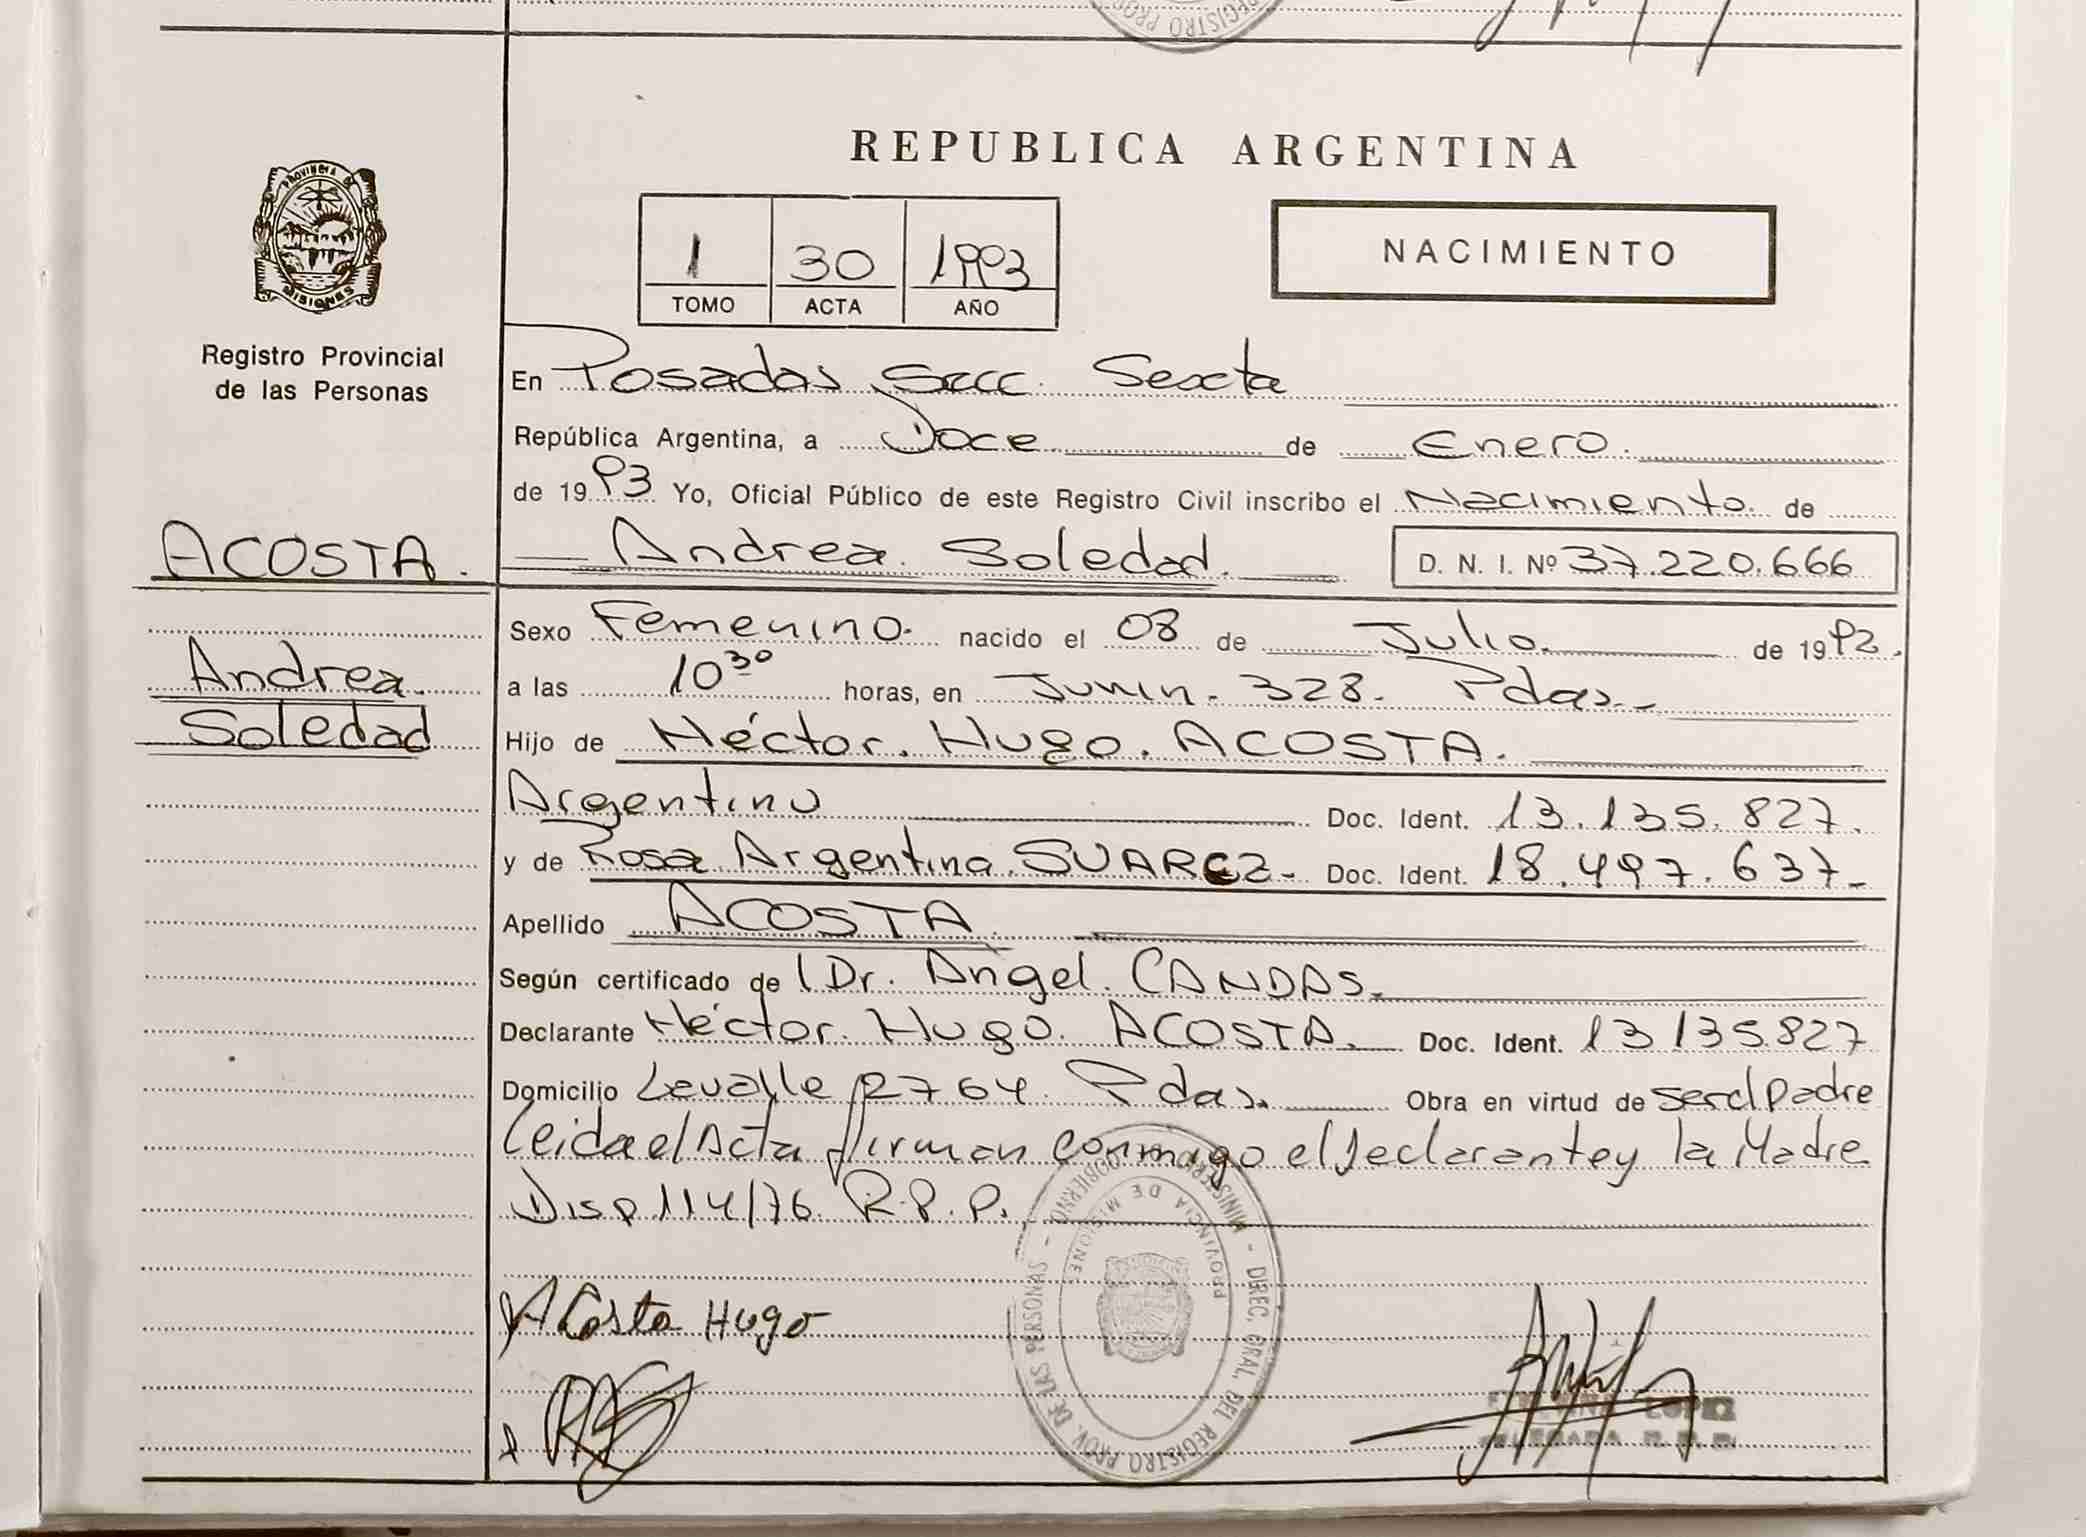 REGISTRO PROV
REPUBLICA ARGENTINA
PROVINCIA DE
MISIONES
1 30 1993
TOMO ACTA AÑO
NACIMIENTO
Registro Provincial
de las Personas
En Posadas Secc. Sexta
República Argentina, a Doce de Enero.
de 1993 Yo, Oficial Público de este Registro Civil inscribo el Nacimiento de
ACOSTA.
Andrea Soledad. D. N. I. Nº 37.220.666
Sexo Femenino. nacido el 08 de Julio. de 1992.
Andrea
Soledad
a las 10 30 horas, en Junin. 328. Pdas.
Hijo de Héctor. Hugo. ACOSTA.
Argentino Doc. Ident. 13.135.827.
y de Rosa Argentina SUAREZ. Doc. Ident. 18.497.637.
Apellido ACOSTA
Según certificado de l Dr. Angel. CANDAS.
Declarante Héctor. Hugo. ACOSTA. Doc. Ident. 13135.827
Domicilio Levalle 2764. Pdas. Obra en virtud de ser el padre
Leida el Acta firman conmigo el declarante y la Madre
Disp 114/76 R.P.P.
MINISTERIO GOBIERNO - DIREC. GRAL. DEL REGISTRO PROV. DE LAS PERSONAS -
PROVINCIA DE MISIONES
Acosta Hugo
LOPEZ
DELEGADA R.P.P.